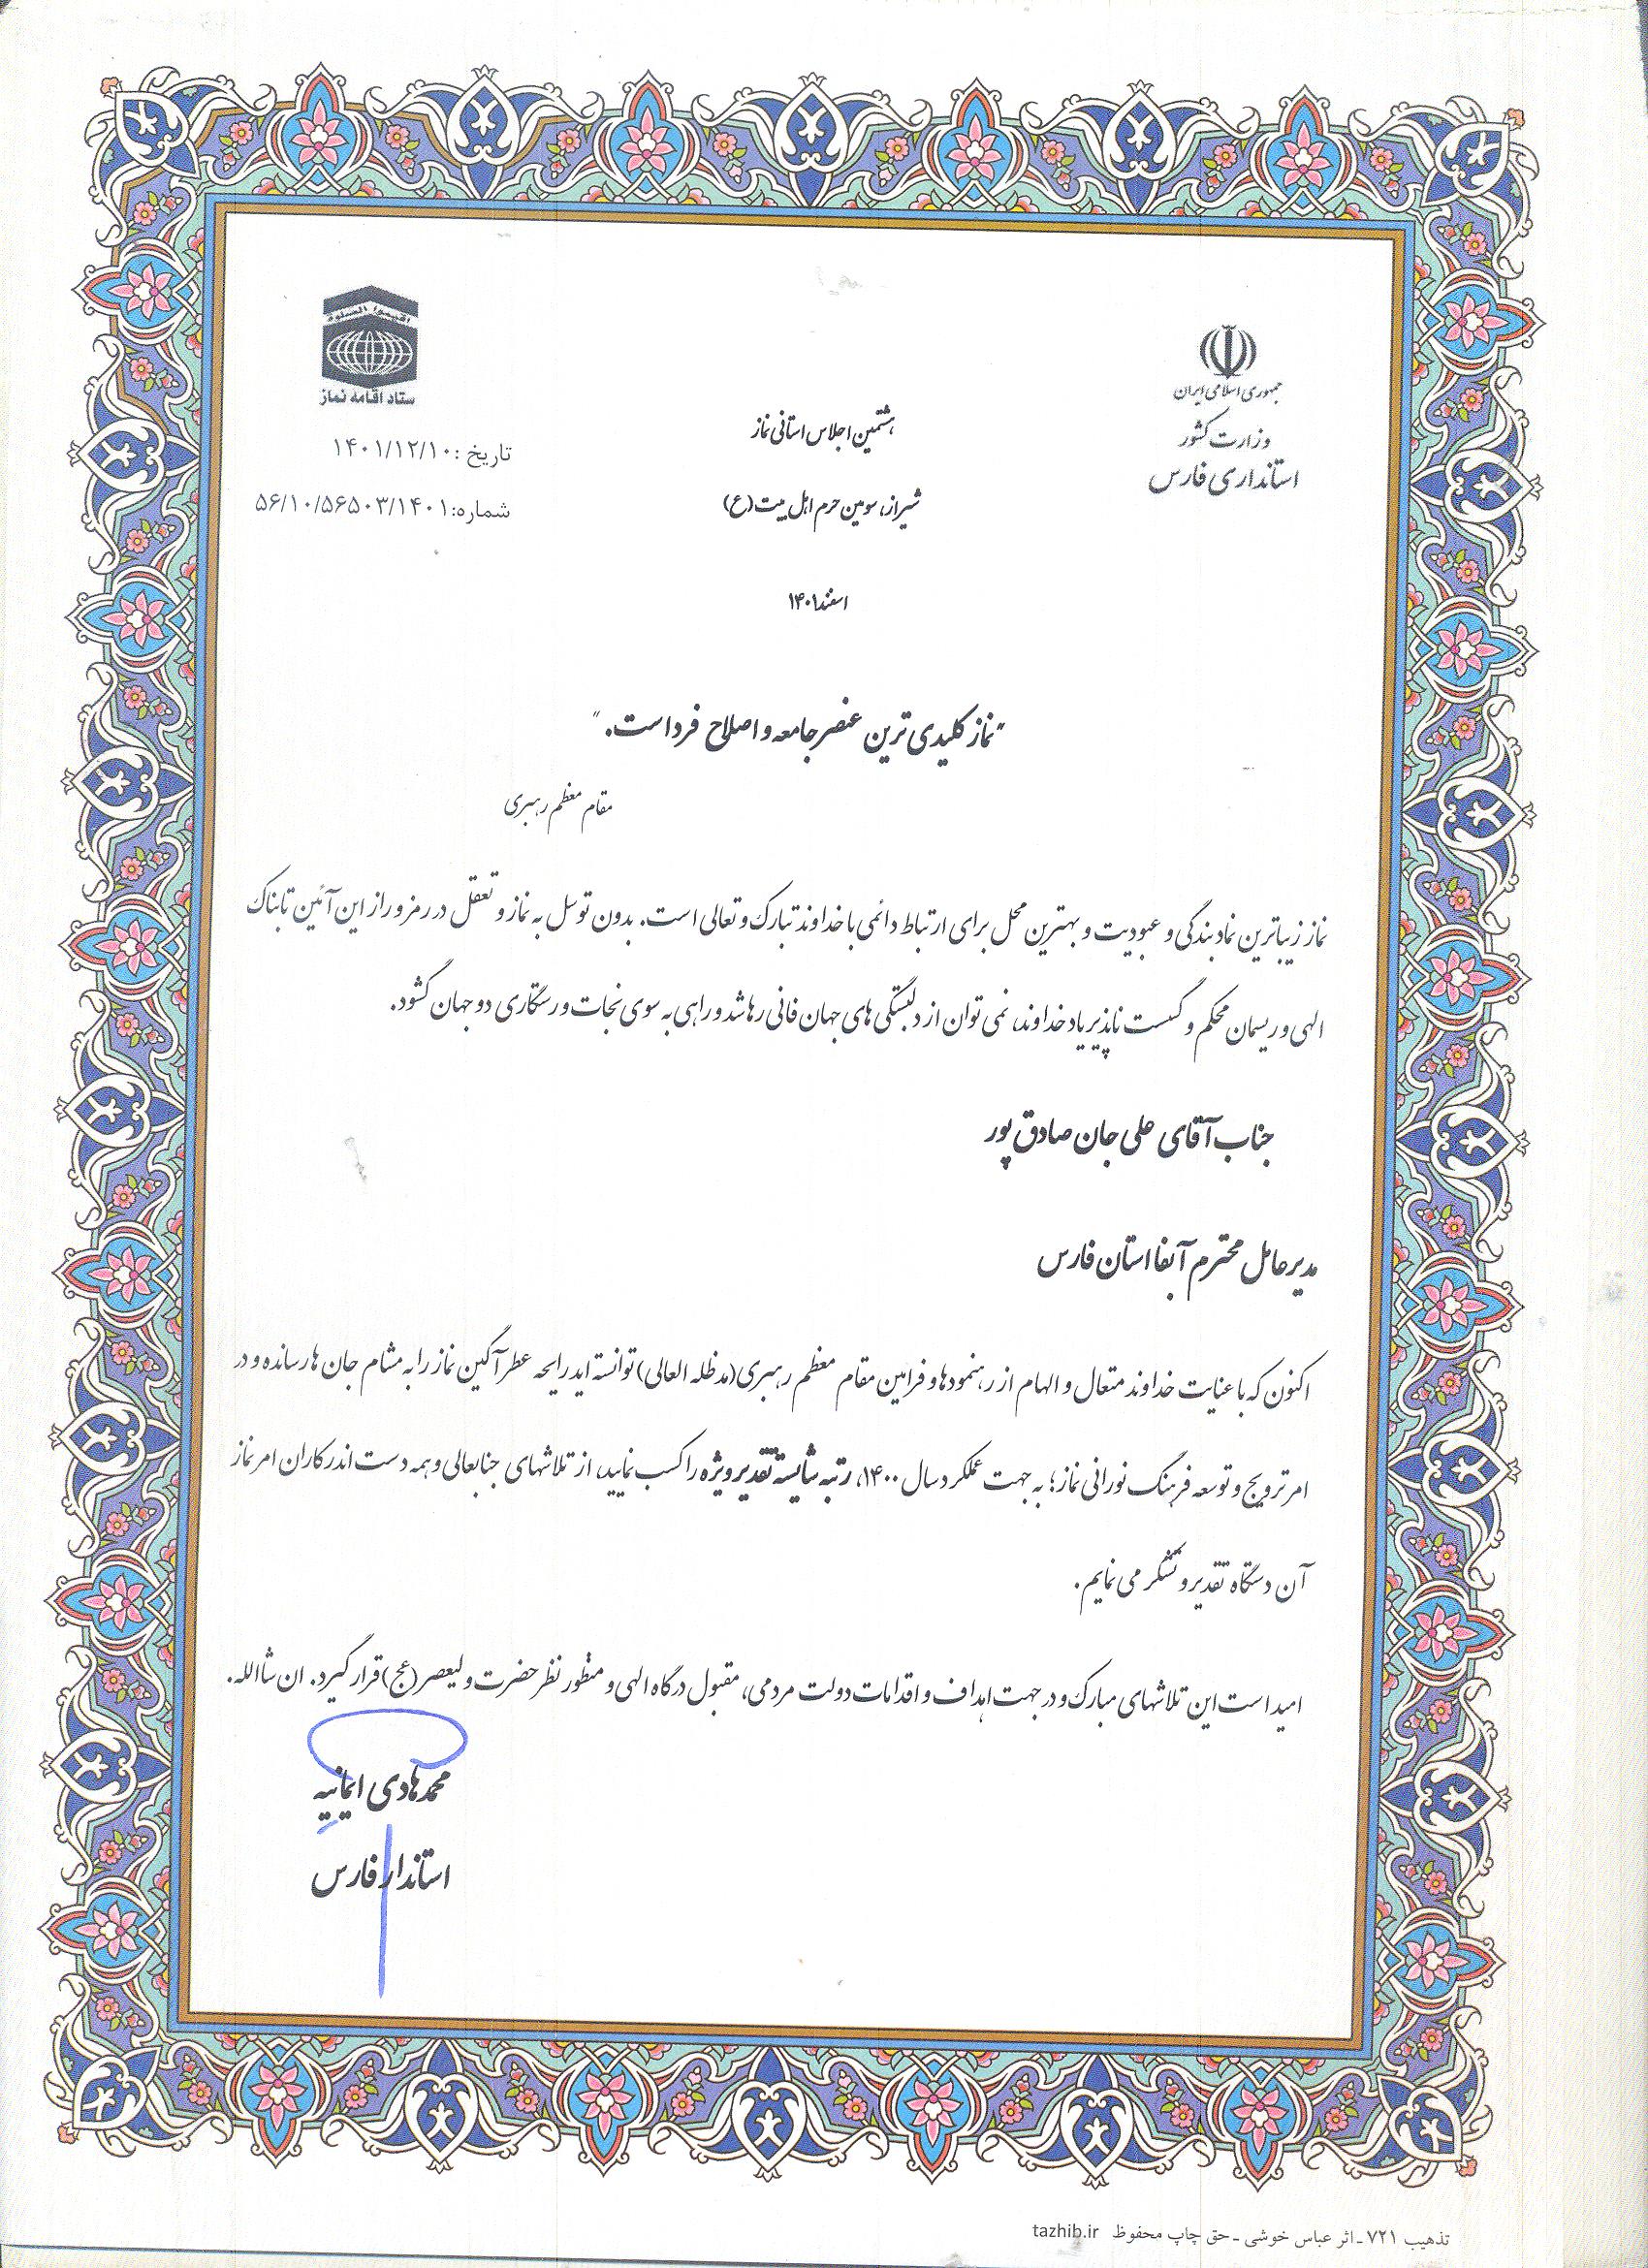 جمهوری اسلامی ایران
وزارت کشور
استانداری فارس
هشتمین اجلاس استانی نماز
شیراز، سومین حرم اهل بیت (ع)
اسفند ۱۴۰۱
اقیموا الصلوة
ستاد اقامه نماز
تاریخ :۱۴۰۱/۱۲/۱۰
شماره:۵۶/۱۰/۵۶۵۰۳/۱۴۰۱
"نماز کلیدی ترین عنصر جامعه و اصلاح فرد است."
مقام معظم رهبری
نماز زیباترین نماد بندگی و عبودیت و بهترین محل برای ارتباط دائمی با خداوند تبارک و تعالی است. بدون توسل به نماز و تعقل در رمز و راز این آئین تابناک
الهی و ریسمان محکم و گسست ناپذیر یاد خداوند، نمی توان از دلبستگی های جهان فانی رها شد و راهی به سوی نجات و رستگاری دو جهان گشود.
جناب آقای علی جان صادق پور
مدیرعامل محترم آبفا استان فارس
اکنون که با عنایت خداوند متعال و الهام از رهنمودها و فرامین مقام معظم رهبری(مدظله العالی) توانسته اید رایحه عطرآگین نماز را به مشام جان ها رسانده و در
امر ترویج و توسعه فرهنگ نورانی نماز؛ به جهت عملکرد سال ۱۴۰۰، رتبه شایسته تقدیر ویژه را کسب نمایید، از تلاشهای جنابعالی و همه دست اندرکاران امر نماز
آن دستگاه تقدیر و تشکر می نمایم.
امید است این تلاشهای مبارک و در جهت اهداف و اقدامات دولت مردمی، مقبول درگاه الهی و منظور نظر حضرت ولیعصر (عج) قرار گیرد. ان شاالله.
محمدهادی ایمانیه
استاندار فارس
تذهیب ۷۲۱ - اثر عباس خوشی - حق چاپ محفوظ tazhib.ir